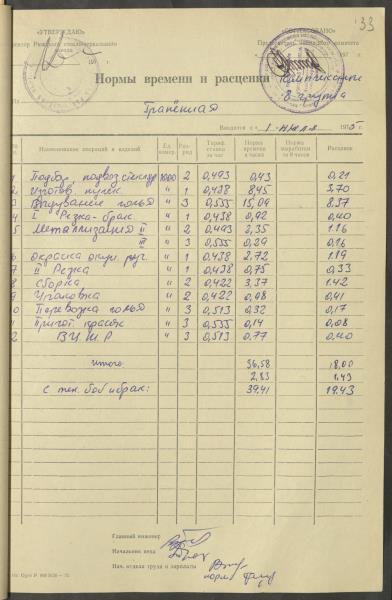 33
«УТВЕРЖДАЮ»
«СОГЛАСОВАНО»
Нормы времени и расценки
8-группа
Вводится с « 1 - июля 1975 г.
Наименование операций и изделий
Ед. измер.
Раз-ряд
Тариф. ставка за час
Норма времени в часах
Норма выработки за 8 часов
Расценок
1 Подбор, подвоз стеклур 1000 2 0,493 0,43 0,21
2 " 1 0,438 8,45 3,70
3 Выдувание " 3 0,555 15,09 8,37
4 I Резка-брак. " 1 0,438 0,92 0,40
5 Металлизация II " 2 0,493 2,35 1.16
III " 3 0,555 0,29 0,16
6 окраска окун. руч. " 1 0,438 2.72 1.19
7 II Резка " 1 0,438 0,75 0,33
8 Сборка " 2 0,422 3,37 1.42
9 Упаковка " 2 0,422 0,98 0,41
10 Перевозка " 3 0,513 0,32 0,17
11 Пригот. красок " 3 0,555 0,14 0,08
12 " 3 0,513 0,77 0,40
итого 36,58 18,00
2,83 1.43
с тех. бой и брак: 39,41 19.43
Главный инженер
Начальник цеха
Нач. отдела труда и зарплаты